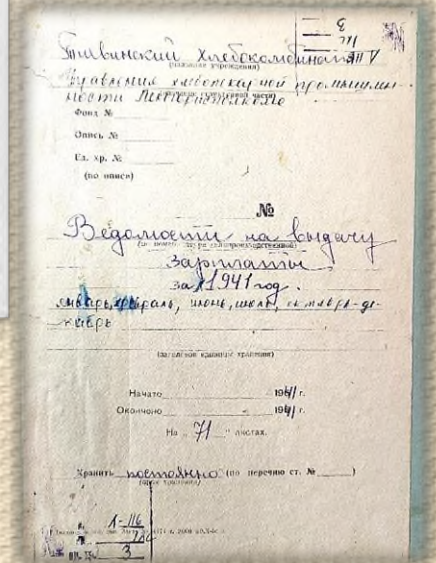 3
хлебокомбинат
(название учреждения)
Управления хлебопекарной промышлен-
ности Ленгорисполкома
Фонд №
Опись №
Ед. хр. №
(по описи)
№
Ведомости на выдачу
зарплаты
за 1941 год.
январь, февраль, июнь, июль, октябрь-де-
кабрь
(заголовок единицы хранения)
Начато 1941 г.
Окончено 1941 г.
На „ 71 “ листах.
Хранить постоянно (по перечню ст. № )
(срок хранения)
Л-116
3